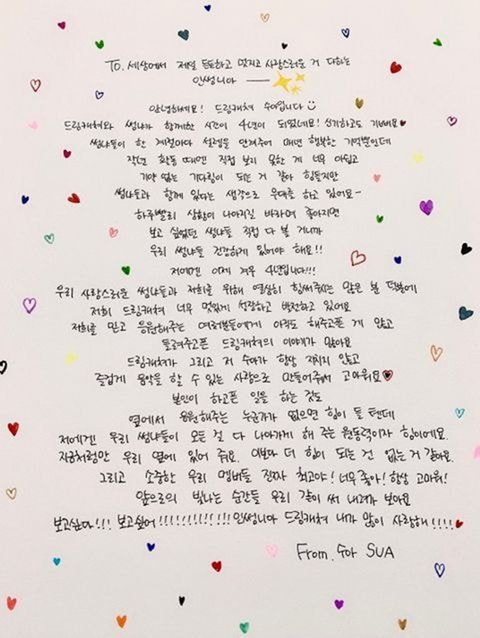 To. 세상에서 제일 든든하고 멋지고 사랑스러운 거 다하는
인썸니아
안녕하세요! 드림캐쳐 수아입니다
드림캐쳐와 썸냐가 함께한 시간이 4년이 되었네요! 신기하고도 기쁘네요
썸냐들이 한 계절마다 선물을 안겨주어 매번 행복한 기억뿐인데
작년 활동 때엔 직접 보지 못한 게 너무 아쉽고
기약 없는 기다림이 되는 거 같아 힘들지만
썸냐들과 함께 있다는 생각으로 무대를 하고 있어요~
하루빨리 상황이 나아지길 바라며 좋아지면
보고 싶었던 썸냐들 직접 다 볼 거니까
우리 썸냐들 건강하게 있어야 해요!!
저에겐 이제 겨우 4년입니다!!!
우리 사랑스러운 썸냐들과 저희를 위해 열심히 힘써주시는 많은 분 덕분에
저희 드림캐쳐 너무 멋있게 성장하고 발전하고 있어요
저희를 믿고 응원해주는 여러분들에게 아직도 해주고픈 게 많고
들려주고픈 드림캐쳐의 이야기가 많아요
드림캐쳐가 그리고 저 수아가 항상 지치지 않고
즐겁게 음악을 할 수 있는 사람으로 만들어주셔서 고마워요
본인이 하고픈 일을 하는 것도
옆에서 응원해주는 누군가가 없으면 힘이 들 텐데
저에겐 우리 썸냐들이 모든 걸 다 나아가게 해 주는 원동력이자 힘이에요.
지금처럼만 우리 옆에 있어 줘요. 이보다 더 힘이 되는 건 없는 거 같아요.
그리고 소중한 우리 멤버들 진짜 최고야! 너무 좋아! 항상 고마워!
앞으로의 빛나는 순간들 우리 같이 써 내려가 보아요
보고싶다!!! 보고싶어!!!!!!!!!!!!! 인썸니아 드림캐쳐 내가 많이 사랑해!!!!
From. 수아 SUA